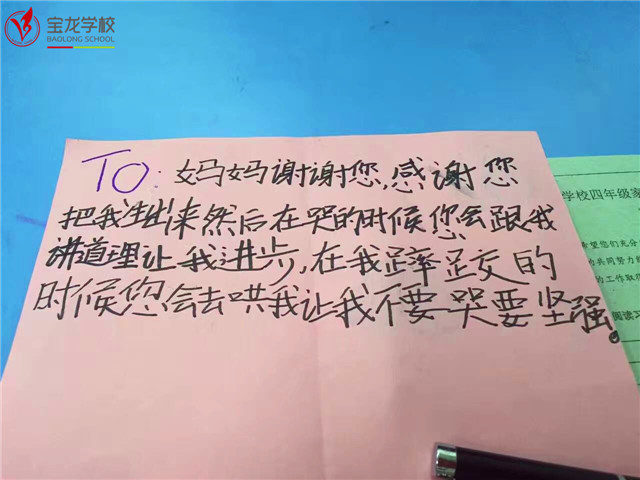 宝龙学校
BAOLONG SCHOOL
TO: 妈妈谢谢您,感谢您
把我生出来然后在哭的时候您会跟我
讲道理让我进步,在我蹿跤的
时候您会去哄我让我不要哭要坚强。
学校四年级家
希望您们充分
共同努力
的工作取
阅读习